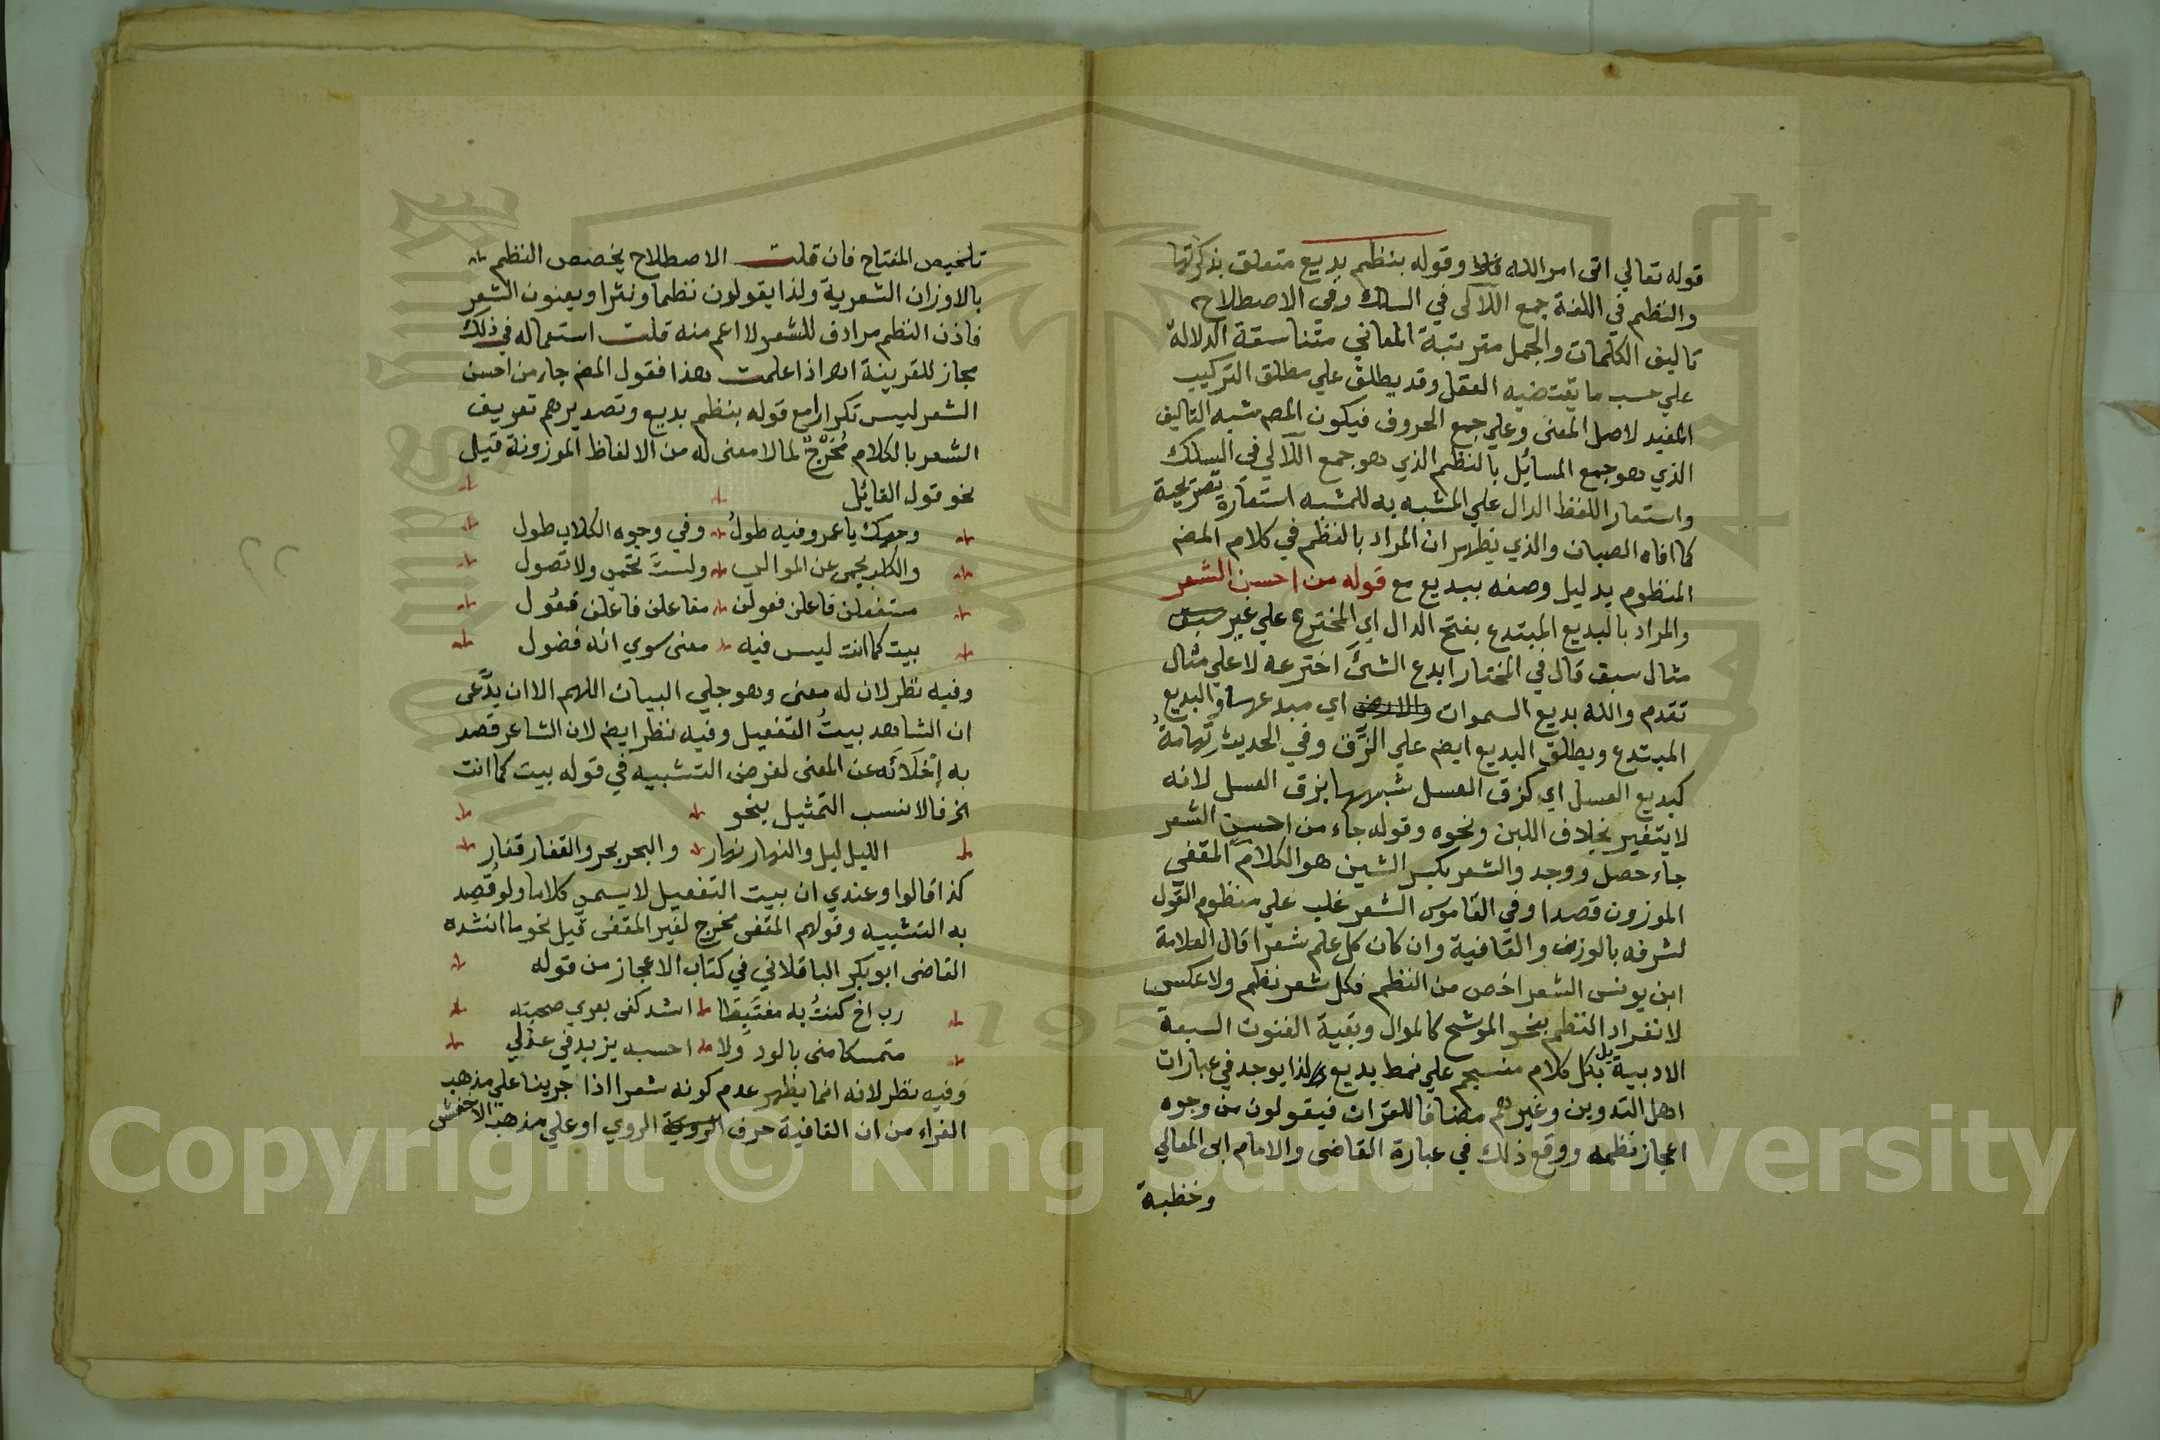 قوله تعالي اتى امر الله وقوله بنظم بديع متعلق بذكرتها
والنظم في اللغة جمع اللآلى في السلك وفي الاصطلاح
تاليف الكلمات والجمل مترتبة المعاني متناسقة الدلالة
علي حسب ما يقتضيه العقل وقد يطلق علي مطلق التركيب
المفيد لاصل المعنى وعلي جمع الحروف فيكون المصم شبه التاليف
الذي هو جمع المسائل بالنظم الذي هو جمع اللآلي في السلك
واستعار اللفظ الدال علي المشبه به للمشبه استعارة تصريحية
كما افاه الصبان والذي يظهر ان المراد بالنظم في كلام المصم
المنظوم بدليل وصفه ببديع مع قوله من احسن الشعر
والمراد بالبديع المبتدع بفتح الدال اي المخترع علي غير سبق
مثال سبق قال في المختار ابدع الشئ اخترعه لا علي مثال
تقدم والله بديع السموات والارض اي مبدعهما والبديع
المبتدع ويطلق البديع ايضم علي الزق وفي الحديث تهامة
كبديع العسل اي كزق العسل شبهها بزق العسل لانه
لا يتغير بخلاف اللبن ونحوه وقوله جاء من احسن الشعر
جاء حصل ووجد والشعر بكسر الشين هو الكلام المقفى
الموزون قصدا وفي القاموس الشعر غلب علي منظوم القول
لشرفه بالوزن والقافية وان كان كل علم شعرا قال العلامة
ابن يونس الشعر اخص من النظم فكل شعر نظم ولا عكس
لانفراد النظم بنحو الموشح كالموال وبقية الفنون السبعة
الادبية بل بكل كلام منسجم علي نمط بديع ولذا يوجد في عبارات
اهل التدوين وغيرهم مضافا للقرآن فيقولون من وجوه
اعجاز نظمه ووقع ذلك في عبارة القاضى والامام ابى المعالي
وخطبة
تلخيص المفتاح فان قلت الاصطلاح يخصص النظم
بالاوزان الشعرية ولذا يقولون نظما ونثرا ويعنون الشعر
فاذن النظم مرادف للشعر لا اعم منه قلت استعماله في ذلك
مجاز للقرينة اهر اذا علمت هذا فقول المصم جاء من احسن
الشعر ليس تكرارا مع قوله بنظم بديع وتصديرهم تعريف
الشعر بالكلام مُخَرِّجٌ لما لا معنى له من الالفاظ الموزونة قيل
نحو قول القائل
وجهك يا عمرو فيه طولُ وفي وجوه الكلاب طول
والكلب يحمى عن الموالي ولستَ تحمى ولا تصول
مستفعلن فاعلن فعولن مفاعلن فاعلن فعول
بيت كما انت ليس فيه معنى سوي انه فضول
وفيه نظر لان له معنى وهو جلي البيان اللهم الا ان يدَّعى
ان الشاهد بيتُ التفعيل وفيه نظر ايضم لان الشاعر قصد
به إخلَائَه عن المعنى لغرض التشبيه في قوله بيت كما انت
الخ فالانسب التمثيل بنحو
الليل ليل والنهار نهار والبحر بحر والقفار قفار
كذا قالوا وعندي ان بيت التفعيل لا يسمى كلاما ولو قُصِد
به التشبيه وقولهم المقفى مخرج لغير المقفى قيل نحو ما انشده
القاضى ابو بكر الباقلاني في كتاب الاعجاز من قوله
رب اخ كنتُ به مغتبِطا اشد كفى بعري صحبته
متمسكا منى بالود ولا احسبه يزيد في عذلي
وفيه نظر لانه انما يظهر عدم كونه شعرا اذا جرينا علي مذهب
الفراء من ان القافية حرف الروي او علي مذهب الاخفش
Copyright © King Saud University